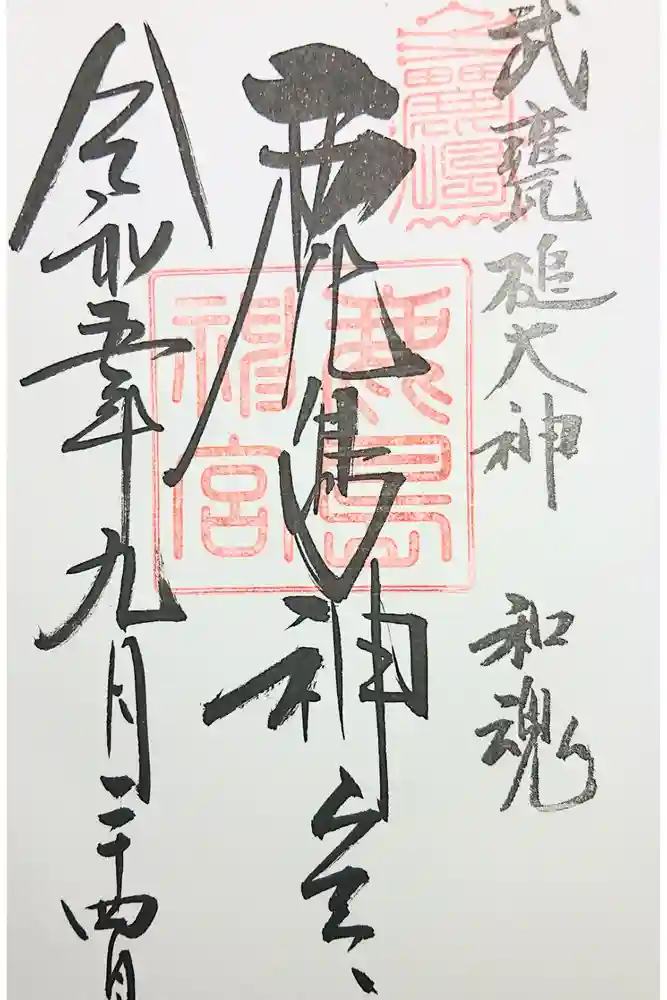 武甕槌大神 和魂
鹿島神宮
鹿島
神宮
令和五年九月二十四日